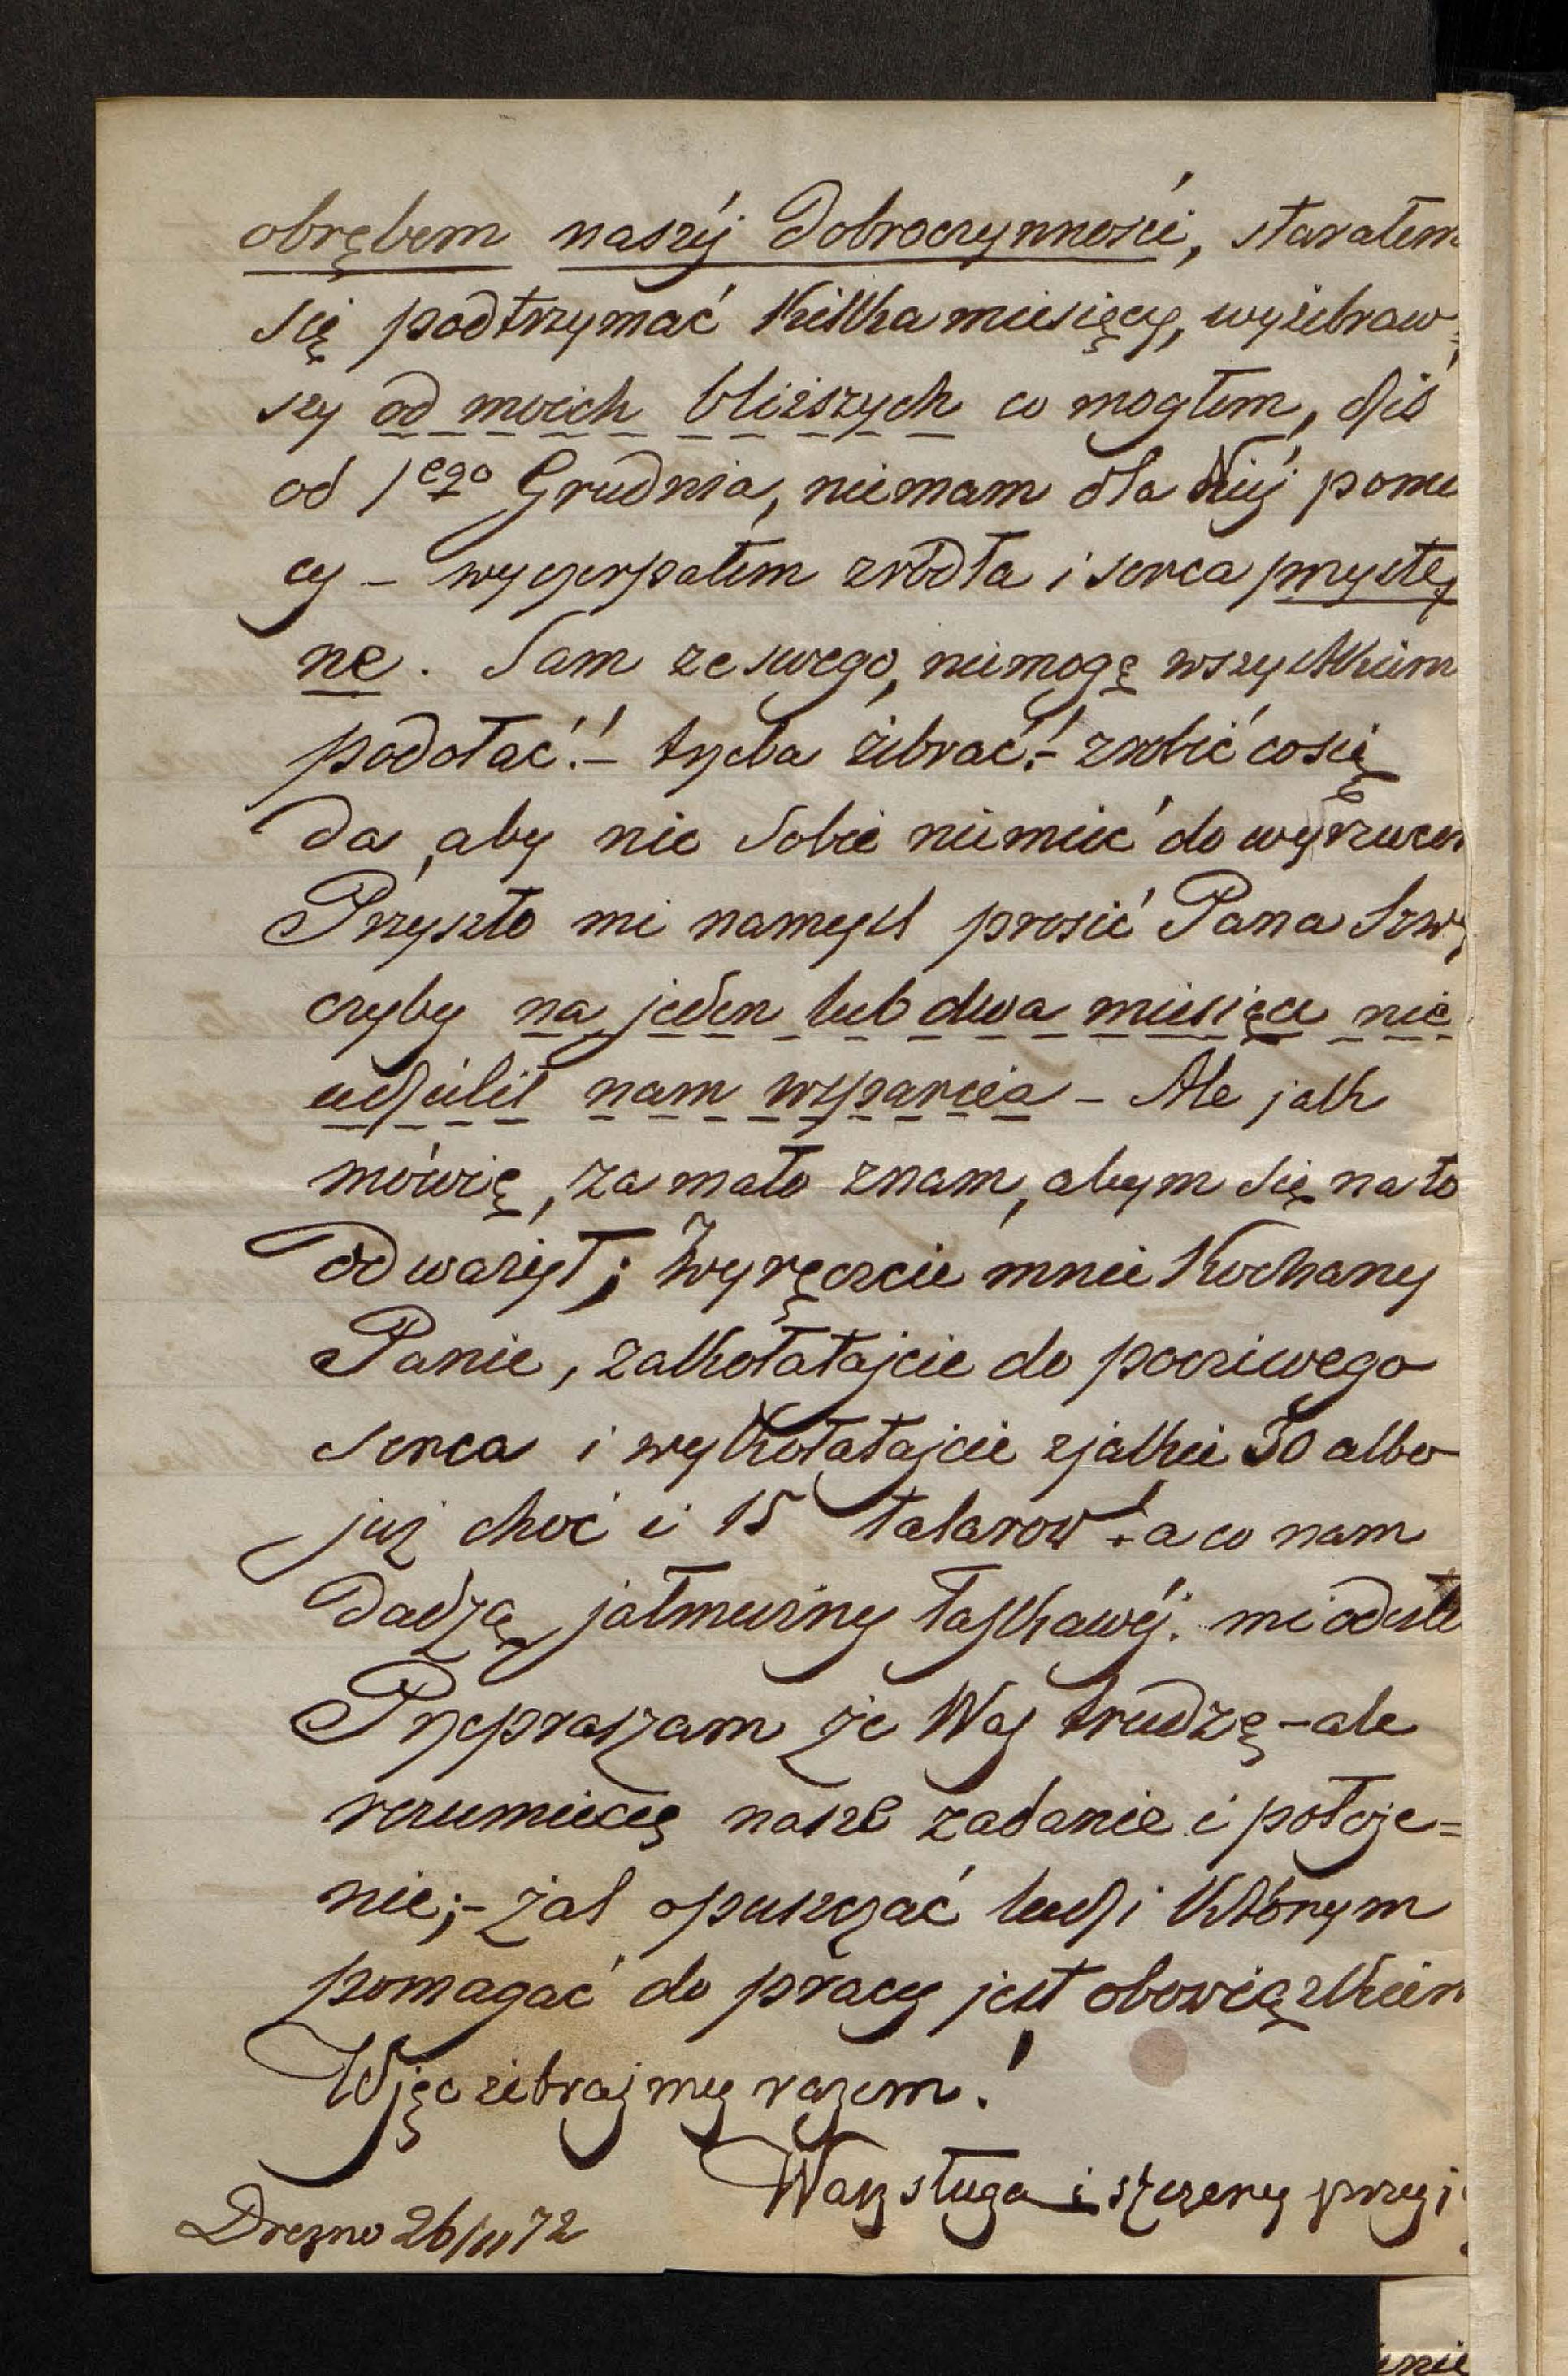 obrębem naszéj Dobroczynności, starałem
się podtrzymać Kilka miesięcy, wyżebraw
szy od moich bliższych co mogłem, dziś
od 1ego Grudnia, niemam dla Niéj pomo
cy – wyczerpałem zrodła i serca przystę
ne. Sam ze swego, niemogę wszystkiem
podołać! – trzeba żebrać! – zrobić co się
da, aby nic Sobie niemieć do wyrzucen
Przyszło mi namyśl prosić Pana Szw
czyby na jeden lub dwa miesiące nie
udzielił nam wsparcia – Ale jak
mówię, za mało znam, abym się na to
odważył; Wyręczcie mnie Kochany
Panie, zakołatajcie do poczciwego
serca i wykołatajcie zjakie 30 albo
już choć i 15 talarow! – a co nam
dadzą, jałmużny łaskawéj. mi odeszle
Przepraszam że Was trudzę – ale
rozumiecie nasze zadanie i położe=
nie; – żal opuszczać ludzi Którym
pomagać do pracy jest obowiązkiem
Więc żebrajmy razem!
Wasz sługa i szczery przyj
Drezno 26/11 72